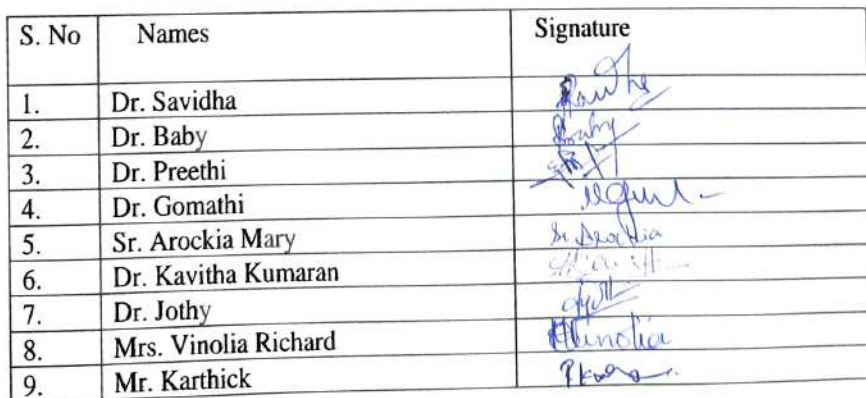 S. No Names Signature
1. Dr. Savidha
2. Dr. Baby Baby
3. Dr. Preethi
4. Dr. Gomathi
5. Sr. Arockia Mary Sr. Arockia
6. Dr. Kavitha Kumaran
7. Dr. Jothy
8. Mrs. Vinolia Richard Vinolia
9. Mr. Karthick